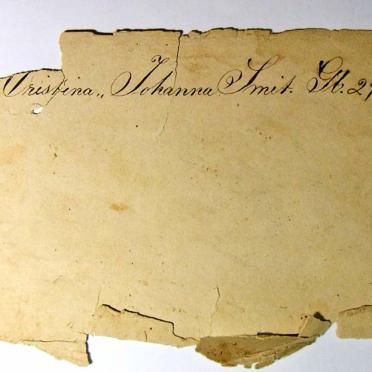 Cristina,, Johanna Smit. Gb. 29